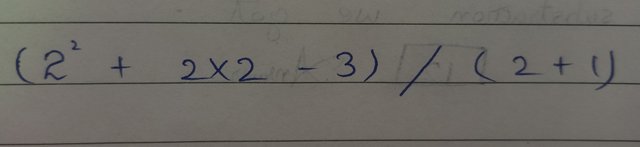 (2² + 2x2 - 3) / (2 + 1)